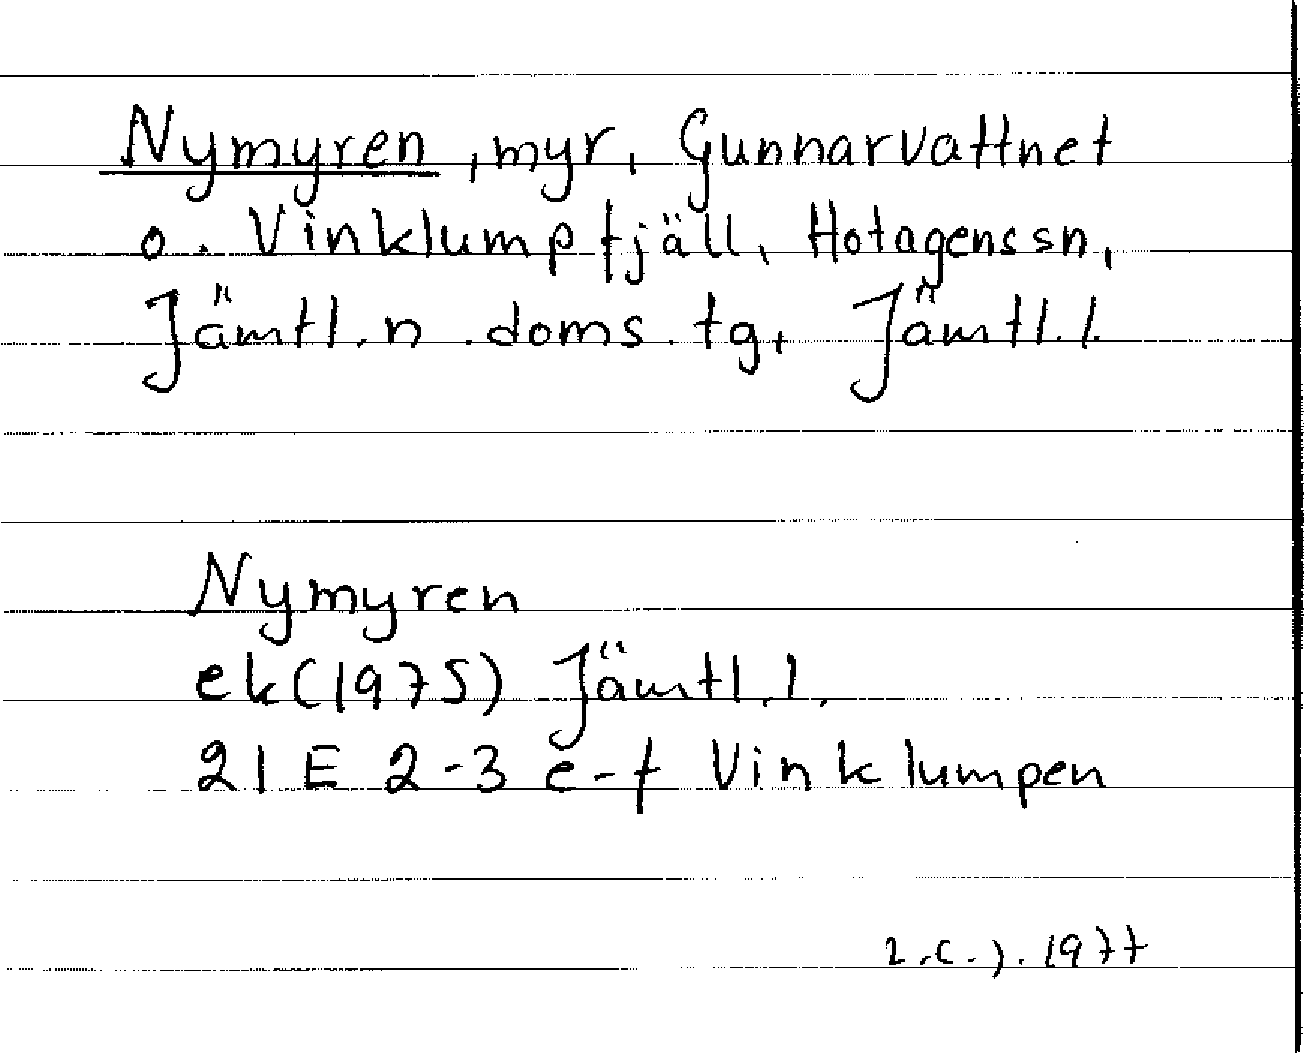 Nymyren, myr, Gunnarvattnet
o. Vinklumpfjäll, Hotagens sn,
Jämtl. n. doms. tg, Jämtl. l.
Nymyren
ek (1975) Jämtl. l.
21 E 2-3 e-f Vinklumpen
1977